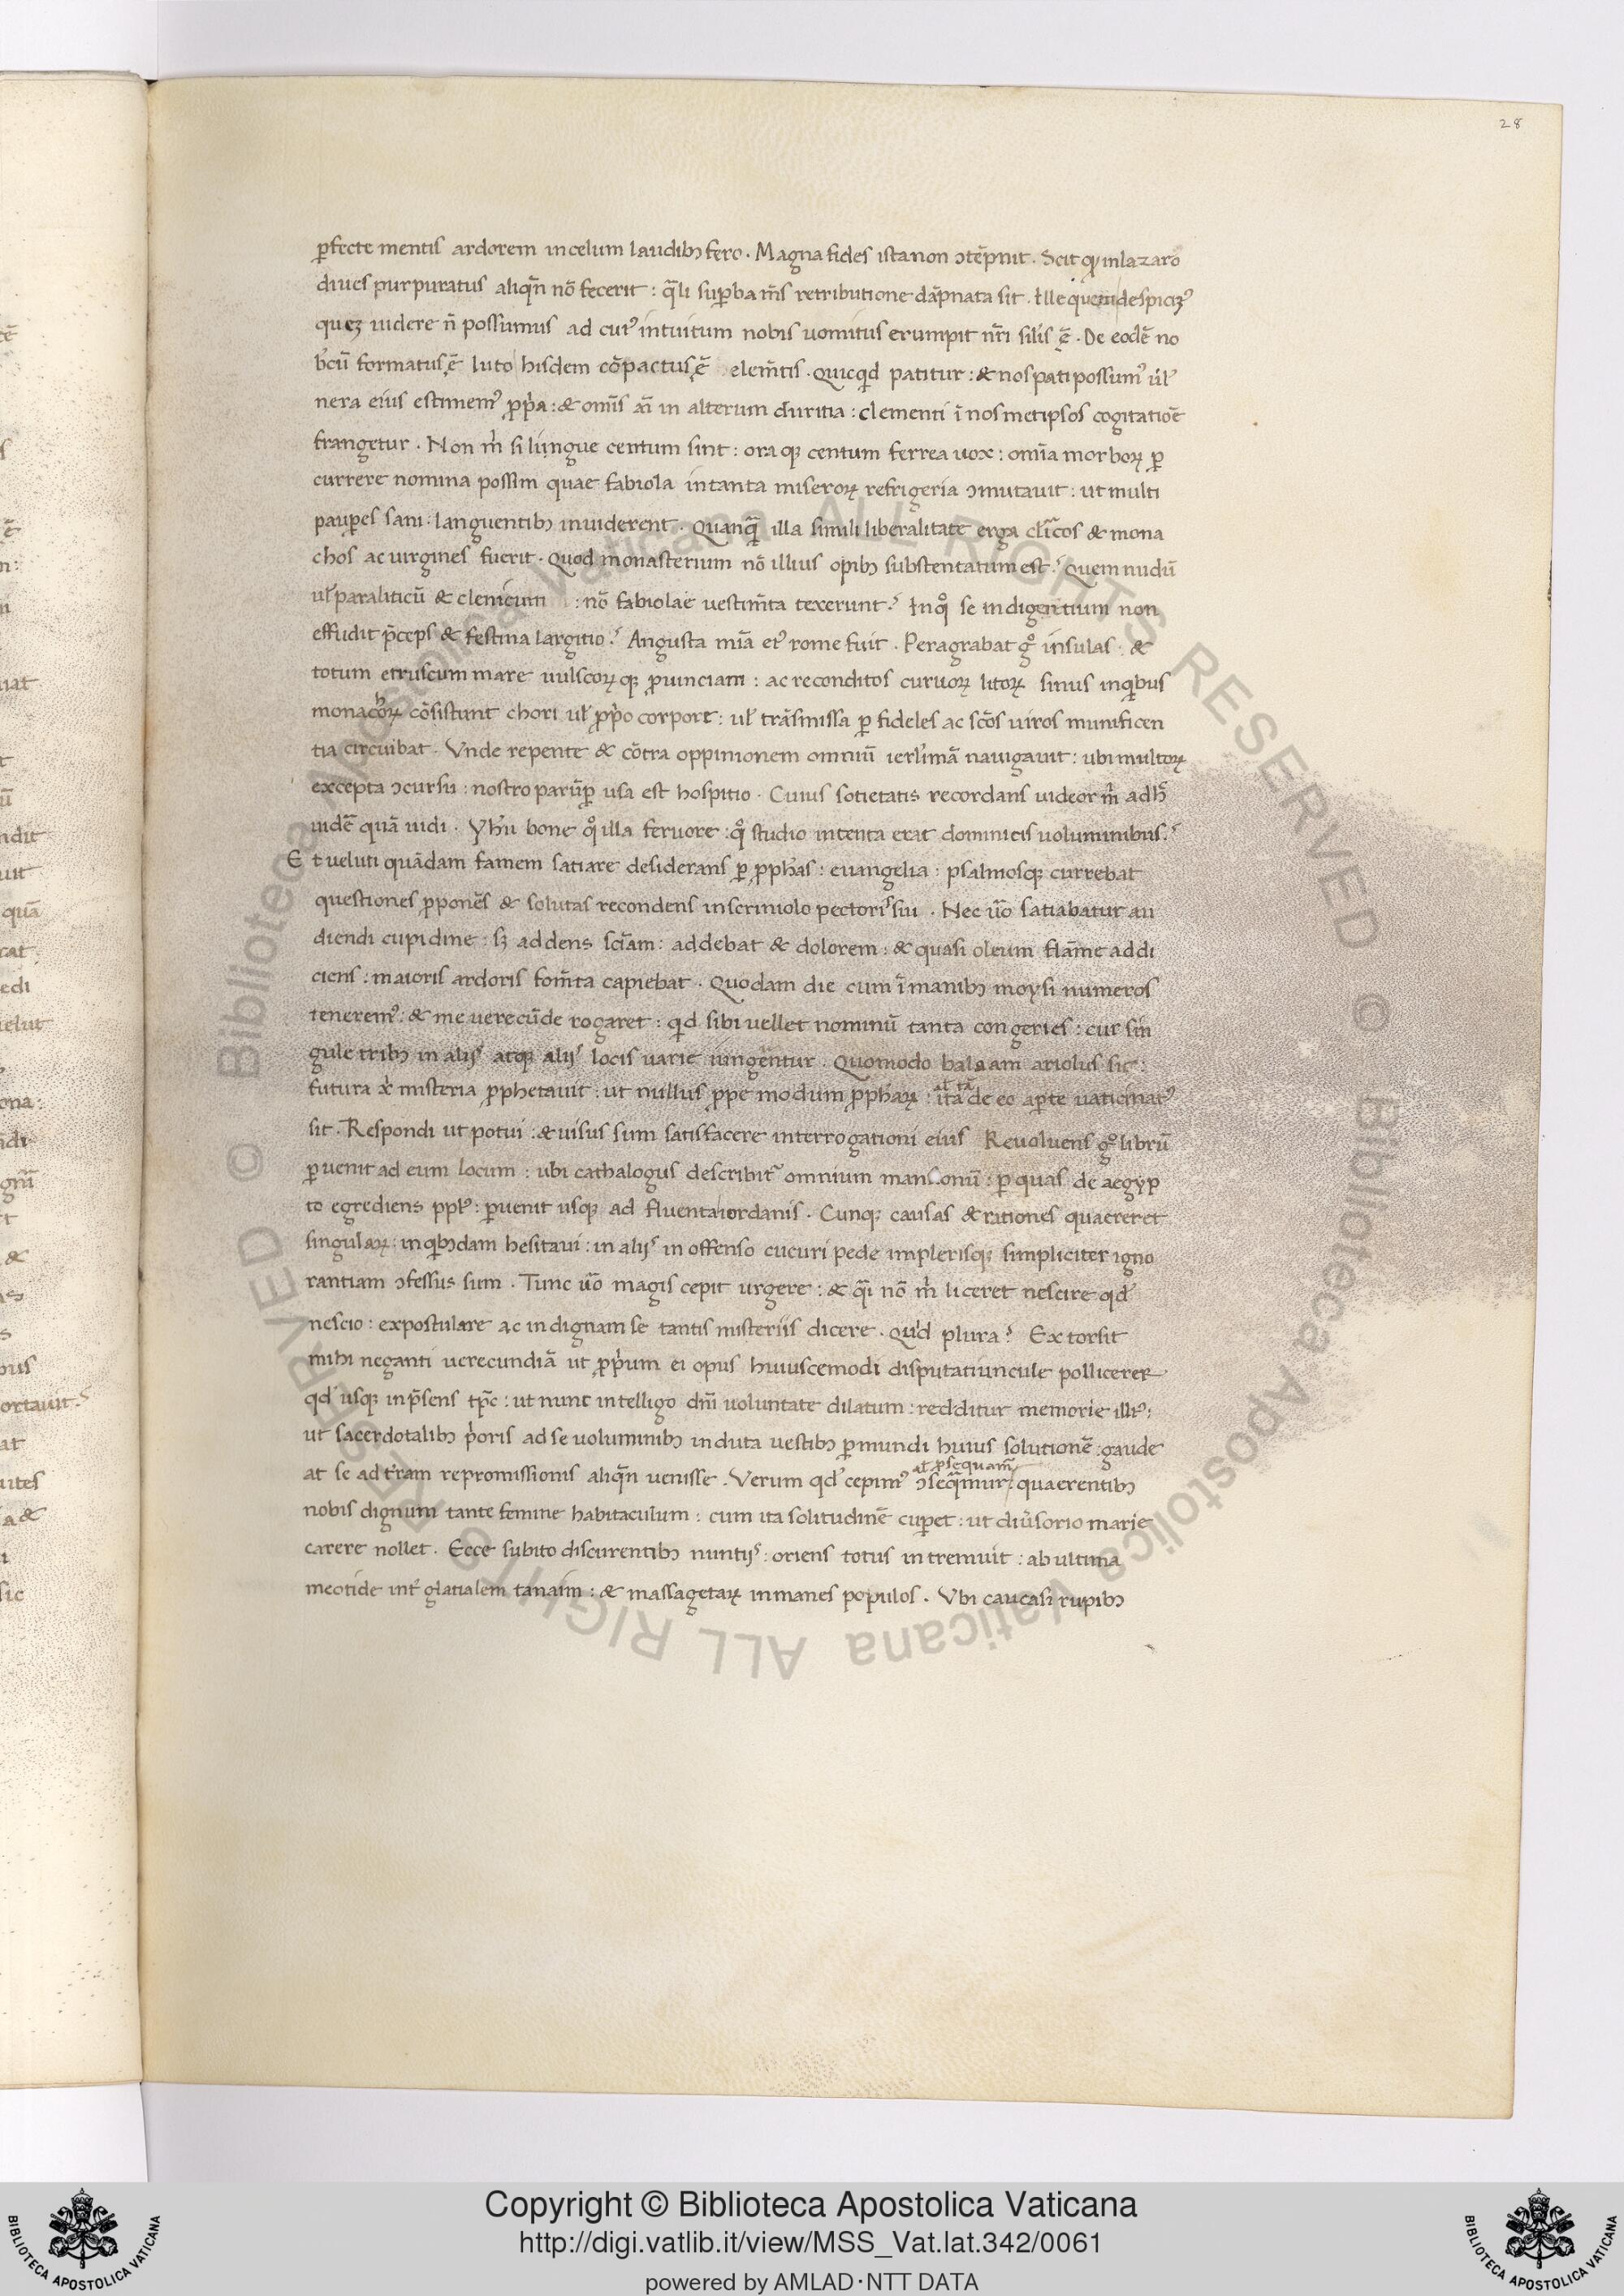 28
ꝑfecte mentis ardorem in celum laudibꝫ fero. Magna fides ista non ↄtēpnit. Scit qͥ in lazaro
diues purpuratus aliqn̄ nō fecerit: qͣli suꝑba m̄s retributione dāpnata sit. Ille quem despicimꝰ
quez uidere n̄ possumus ad cuiꝰ intuitum nobis uomitus erumpit nr̄i silis ē. De eodē no
bˢcū formatus ē luto hisdem cōpactus ē elem̄tis. Quicqͥd patitur: & nos pati possumꝰ ul̓
nera eius estimemꝰ ꝓpͥa: & omīs aī in alterum duritia: clementi ī nosmetipsos cogitatiōe
frangetur. Non m̓ si lingue centum sint: oraqꝫ centum ferrea uox: omīa morboꝝ ꝑ
currere nomina possim quae fabiola in tanta miseroꝝ refrigeria ↄmutauit: ut multi
pauꝑes sani: languentibꝫ inuiderent. Quanqͣ illa simili liberalitate erga cl̓icos & mona
chos ac uirgines fuerit. Quod monasterium nō illius opibꝫ substentatum est? Quem nudū
ul̓ paraliticū & clenicum : nō fabiolae uestim̄ta texerunt? Inqͦ se indigentium non
effudit p̄ceps & festina largitio? Angusta mīa eiꝰ rome fuit. Peragrabat gͦ insulas &
totum etruscum mare uulscoꝝqꝫ ꝓuinciam: ac reconditos curuoꝝ litoꝝ sinus in qͥbus
monachoꝝ cōsistunt chori ul̓ ꝓpͥo corpore: ul̓ trāsmissa ꝑ fideles ac scōs uiros munificen
tia circuibat. Vnde repente & cōtra oppinionem omniū ierl̓imā nauigauit: ubi multoꝝ
excepta ↄcursu: nostro parūꝑ usa est hospitio. Cuius sotietatis recordans uideor m̓ adhͨ
uidē quā uidi. Yhū bone qͦ illa feruore: qͦ studio intenta erat dominicis uoluminibus?
Et ueluti quādam famem satiare desiderans ꝑ ꝓphās: euangelia: psalmosqꝫ currebat
questiones ꝓponēs & solutas recondens in scriniolo pectoris sui. Nec ūo satiabatur au
diendi cupidine: sꝫ addens sciam: addebat & dolorem: & quasi oleum flāme addi
ciens: maioris ardoris fom̄ta capiebat. Quodam die cum ī manibꝫ moysi numeros
teneremꝰ: & me uerecūde rogaret: qͥd sibi uellet nominū tanta congeries: cur sin
gule tribꝫ in alijs atqꝫ alijs locis uarie iungerentur. Quomodo balaam ariolus sic:
futura xͥ misteria ꝓphetauit: ut nullus ꝓpe modum ꝓphaꝝ: ita de eo aꝑte uaticinatꝰ
al̓ tā
sit. Respondi ut potui: & uisus sum satisfacere interrogationi eius Reuoluens gͦ librū
ꝑuenit ad eum locum: ubi cathalogus describit᷑ omnium mansionū: ꝑ quas de aegyp
to egrediens pplꝰ: ꝑuenit usqꝫ ad fluenta iordanis. Cunqꝫ causas & rationes quaereret
singulaꝝ: in qͥbꝫdam hesitaui: in alijs in offenso cucuri pede in plerisqꝫ simpliciter igno
rantiam ↄfessus sum. Tunc ūo magis cepit urgere: & qͣi nō m̓ liceret nescire qd̓
nescio: expostulare ac indignam se tantis misteriis dicere. Quid plura? Extorsit
mihi neganti uerecundiā ut ꝓpͥum ei opus huiuscemodi disputatiuncule pollicerer
qd̓ usqꝫ in p̄sens tpc̄: ut nunc intelligo dn̄i uoluntate dilatum: redditur memorie illiꝰ:
ut sacerdotalibꝫ pͥoris ad se uoluminibꝫ induta uestibꝫ ꝑ mundi huius solutionē: gaude
at se ad tr̄am repromissionis aliqn̄ uenisse. Verum qd̓ cepimꝰ ↄseqͣmur: quaerentibꝫ
al̓ ꝓsequam̄
nobis dignum tante femine habitaculum: cum ita solitudinē cuꝑet: ut diūsorio marie
carere nollet. Ecce subito discurentibꝫ nuntijs: oriens totus intremuit: ab ultima
meotide int̓ glatialem tanaim: & massagetaꝝ inmanes populos. Vbi caucasi rupibꝫ
Copyright © Biblioteca Apostolica Vaticana
http://digi.vatlib.it/view/MSS_Vat.lat.342/0061
powered by AMLAD·NTT DATA